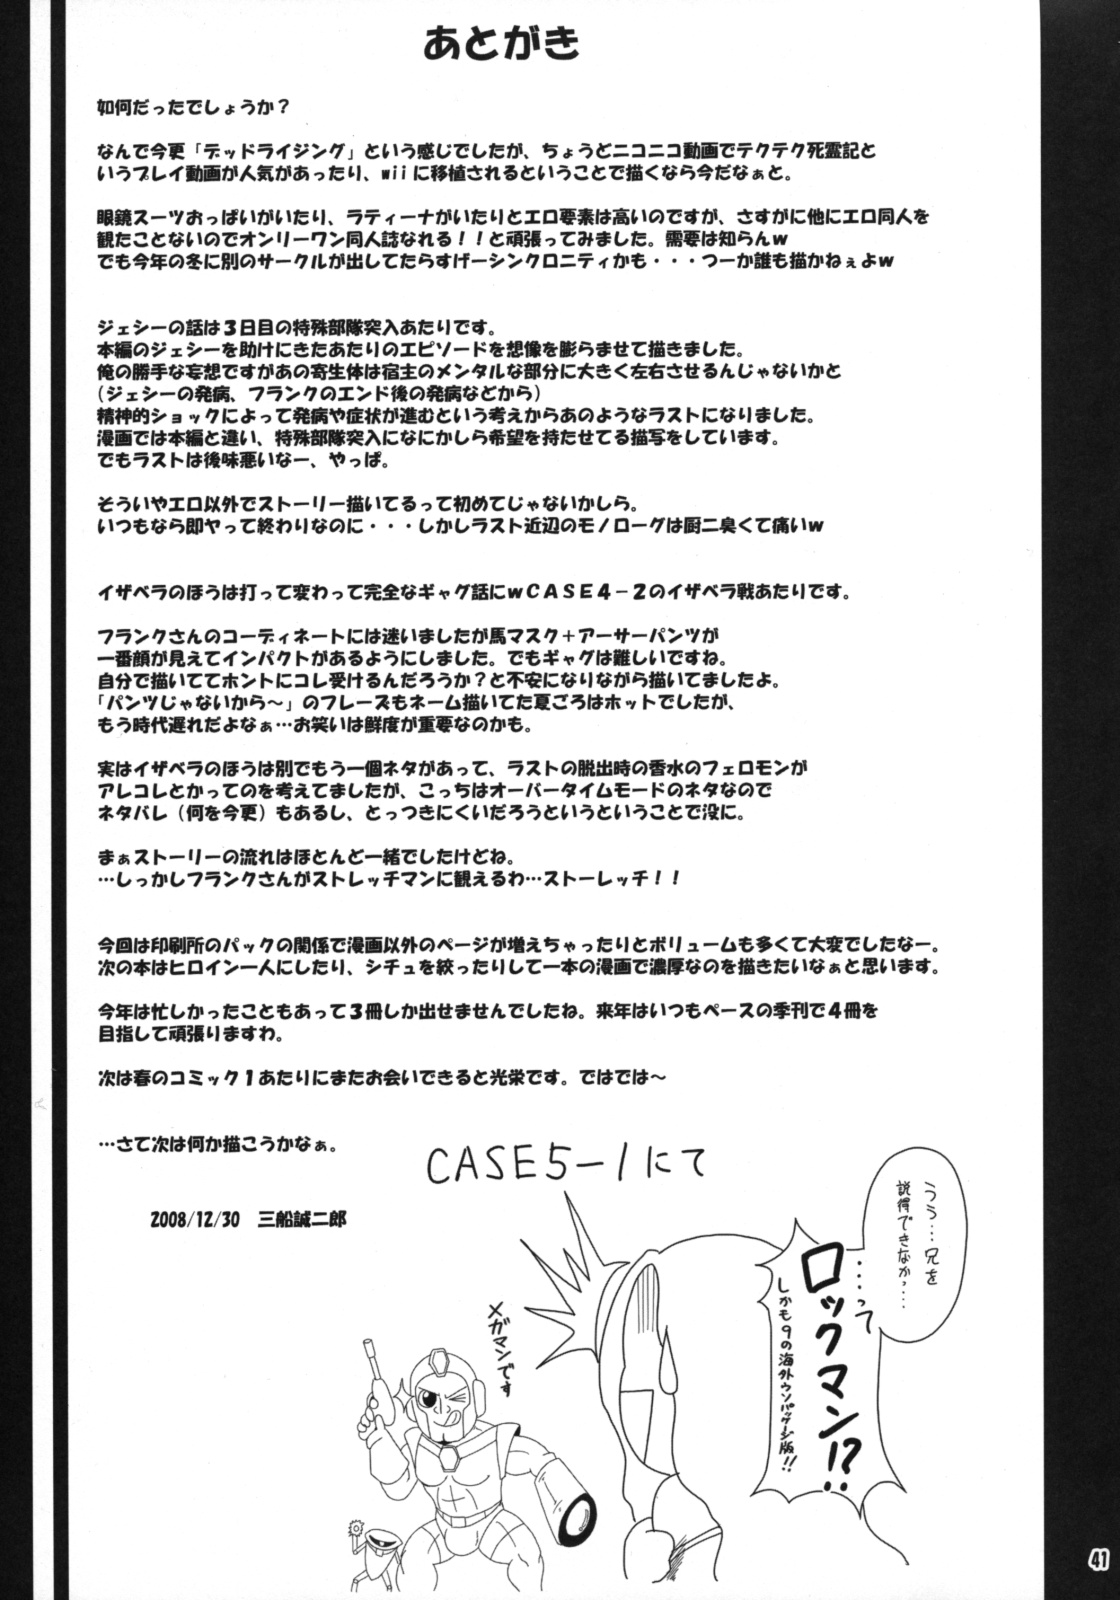 あとがき
如何だったでしょうか？
なんで今更「デッドライジング」という感じでしたが、ちょうどニコニコ動画でテクテク死霊記と
いうプレイ動画が人気があったり、wiiに移植されるということで描くなら今だなぁと。
眼鏡スーツおっぱいがいたり、ラティーナがいたりとエロ要素は高いのですが、さすがに他にエロ同人を
観たことないのでオンリーワン同人誌なれる！！と頑張ってみました。需要は知らんｗ
でも今年の冬に別のサークルが出してたらすげーシンクロニティかも・・・つーか誰も描かねぇよｗ
ジェシーの話は３日目の特殊部隊突入あたりです。
本編のジェシーを助けにきたあたりのエピソードを想像を膨らませて描きました。
俺の勝手な妄想ですがあの寄生体は宿主のメンタルな部分に大きく左右させるんじゃないかと
（ジェシーの発病、フランクのエンド後の発病などから）
精神的ショックによって発病や症状が進むという考えからあのようなラストになりました。
漫画では本編と違い、特殊部隊突入になにかしら希望を持たせてる描写をしています。
でもラストは後味悪いなー、やっぱ。
そういやエロ以外でストーリー描いてるって初めてじゃないかしら。
いつもなら即ヤって終わりなのに・・・しかしラスト近辺のモノローグは厨二臭くて痛いｗ
イザベラのほうは打って変わって完全なギャグ話にｗＣＡＳＥ４－２のイザベラ戦あたりです。
フランクさんのコーディネートには迷いましたが馬マスク＋アーサーパンツが
一番顔が見えてインパクトがあるようにしました。でもギャグは難しいですね。
自分で描いててホントにコレ受けるんだろうか？と不安になりながら描いてましたよ。
「パンツじゃないから～」のフレーズもネーム描いてた夏ごろはホットでしたが、
もう時代遅れだよなぁ…お笑いは鮮度が重要なのかも。
実はイザベラのほうは別でもう一個ネタがあって、ラストの脱出時の香水のフェロモンが
アレコレとかってのを考えてましたが、こっちはオーバータイムモードのネタなので
ネタバレ（何を今更）もあるし、とっつきにくいだろうというということで没に。
まぁストーリーの流れはほとんど一緒でしたけどね。
…しっかしフランクさんがストレッチマンに観えるわ…ストーレッチ！！
今回は印刷所のパックの関係で漫画以外のページが増えちゃったりとボリュームも多くて大変でしたなー。
次の本はヒロイン一人にしたり、シチュを絞ったりして一本の漫画で濃厚なのを描きたいなぁと思います。
今年は忙しかったこともあって３冊しか出せませんでしたね。来年はいつもペースの季刊で４冊を
目指して頑張りますわ。
次は春のコミック１あたりにまたお会いできると光栄です。ではでは～
…さて次は何か描こうかなぁ。
2008/12/30　三船誠二郎
CASE5－1にて
うう…兄を
説得できなかっ…
…って
ロックマン!?
しかも9の海外ウソパッケージ版!!
メガマンです
41